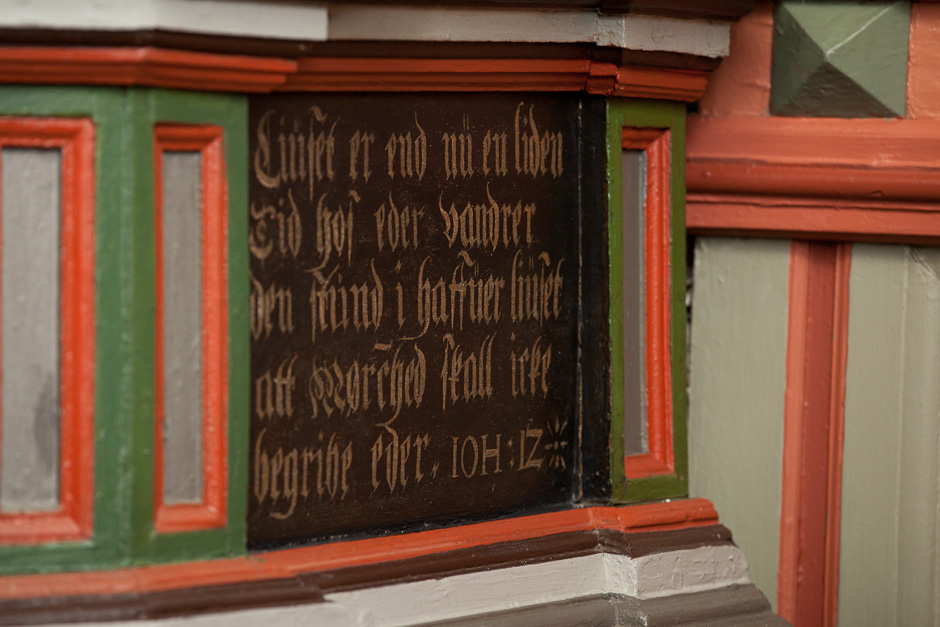 Liuset er end nü en liden
Tid hos eder Vandrer
den stünd i haffüer liüset
att Mørched skall icke
begribe eder, IOH: 12